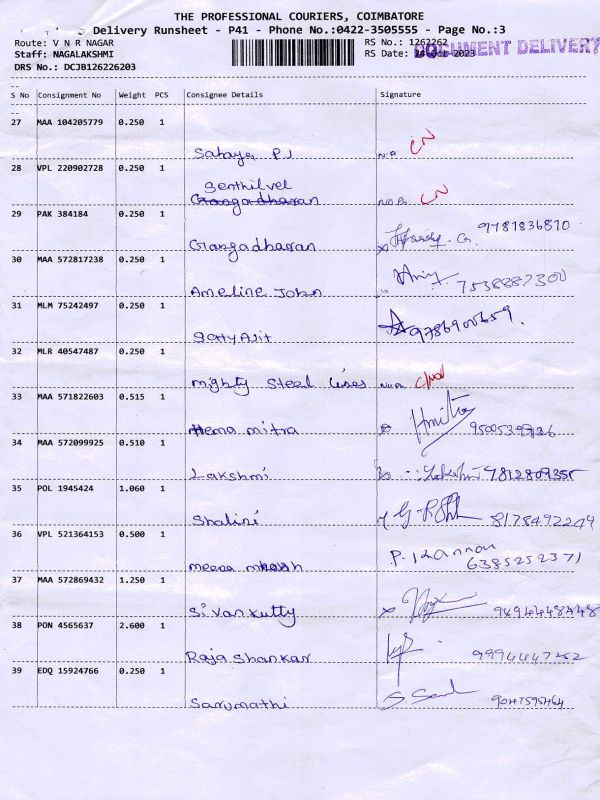 THE PROFESSIONAL COURIERS, COIMBATORE
Delivery Runsheet - P41 - Phone No.:0422-3505555 - Page No.:3
Route: V N R NAGAR
RS No.: 1262262
DOCUMENT DELIVERY
Staff: NAGALAKSHMI
RS Date: -2023
DRS No.: DCJB126226203
S No Consignment No Weight PCS Consignee Details Signature
27 MAA 104205779 0.250 1
Sahaya P J
28 VPL 220902728 0.250 1
Senthilvel
Gangadharan
29 PAK 384184 0.250 1
Gangadharan 9781836870
30 MAA 572817238 0.250 1
Ameline John 7538887300
31 MLM 75242497 0.250 1
9786900659
32 MLR 40547487 0.250 1
Mighty Steel
33 MAA 571822603 0.515 1
Hema mitra Hmitra
34 MAA 572099925 0.510 1
Lakshmi 7812809355
35 POL 1945424 1.060 1
Shalini 8178492249
36 VPL 521364153 0.500 1
meena P. Kannan
6385252371
37 MAA 572869432 1.250 1
Sivankutty 9494448448
38 PON 4565637 2.600 1
Raja Shankar 9994447252
39 EDQ 15924766 0.250 1
Sarumathi 9047595464